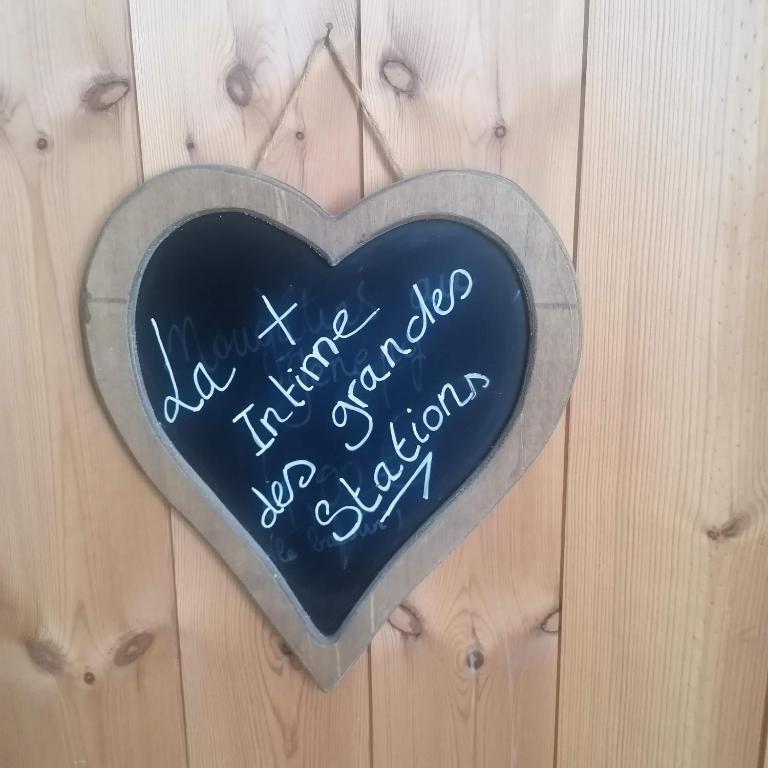 La +
Intime
des grandes
Stations